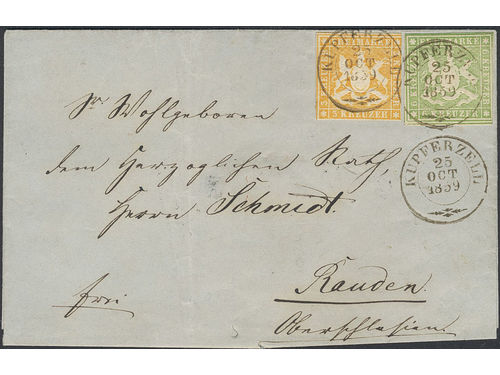 FREIMARKE
3 KREUZER
KUPFERZELL
25
OCT
1859
FREIMARKE
6 KREUZER
KUPFERZELL
25
OCT
1859
Sr Wohlgeboren
dem Herzoglichen Rath,
Herrn Schmidt.
KUPFERZELL
25
OCT
1859
Rauden
frei
Oberschlesien.